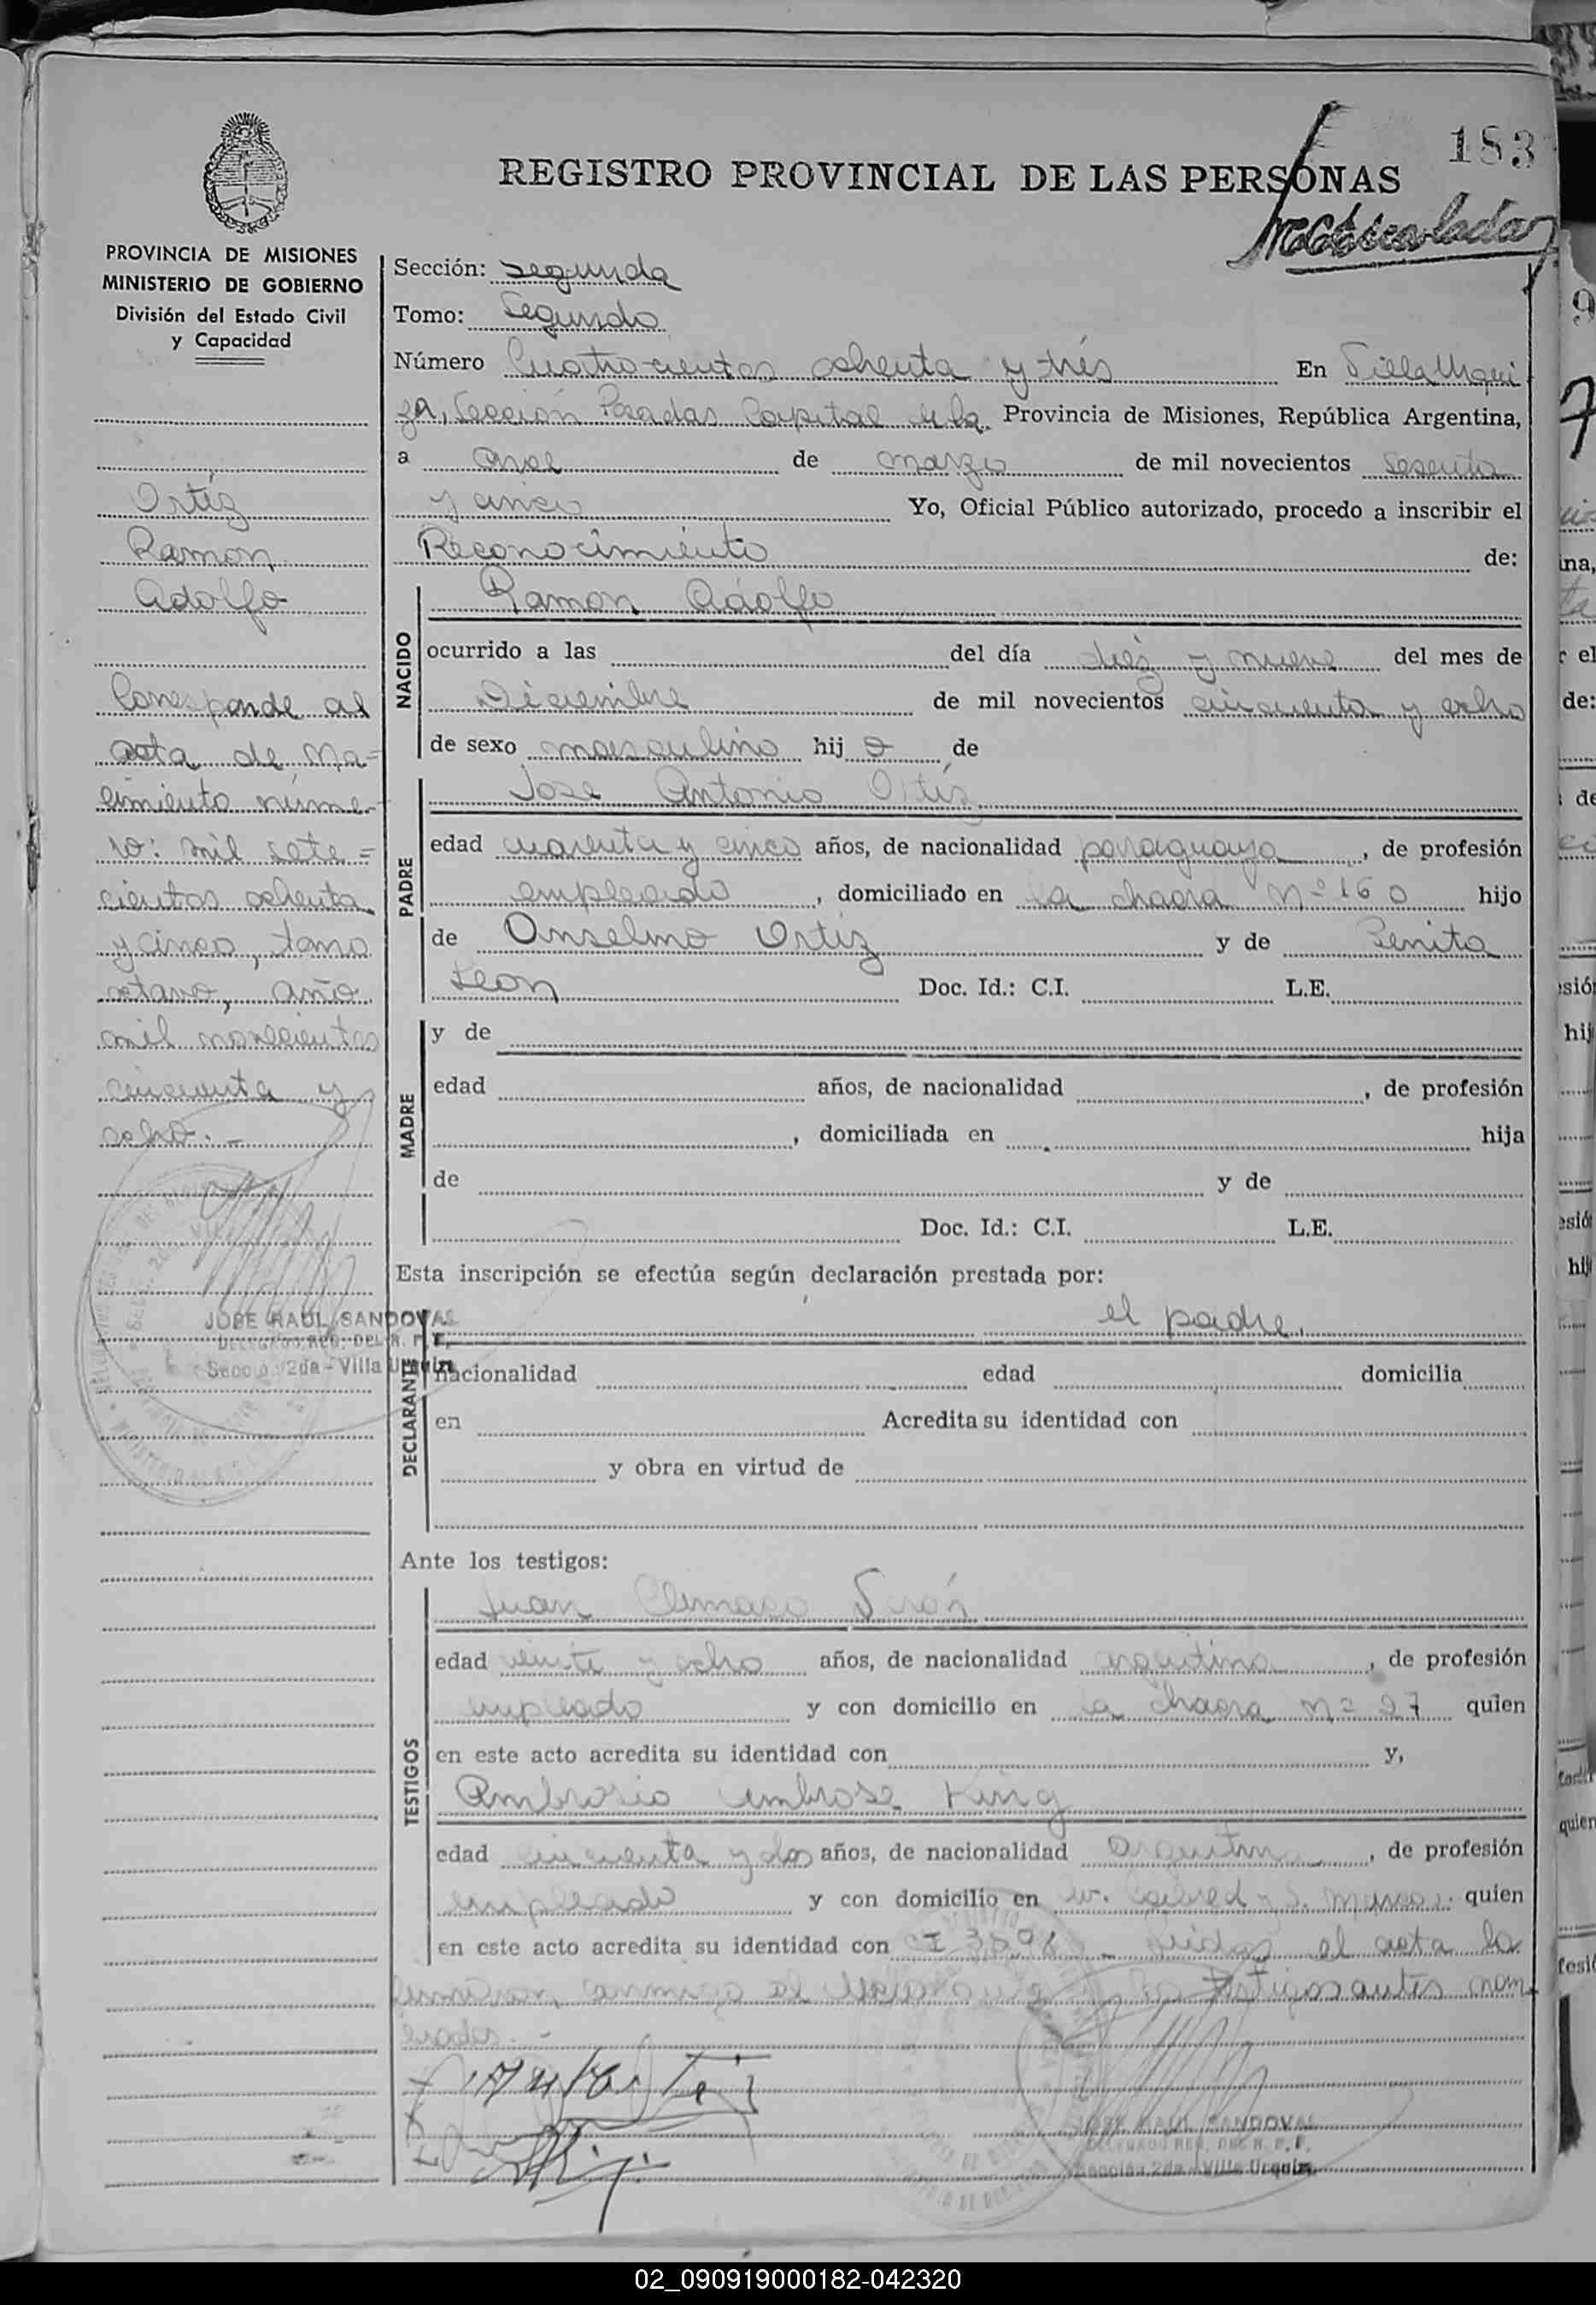 183
REGISTRO PROVINCIAL DE LAS PERSONAS
PROVINCIA DE MISIONES
MINISTERIO DE GOBIERNO
División del Estado Civil
y Capacidad
Ortíz
Ramon
Adolfo
Corresponde al
acta de na-
cimiento núme-
ro: mil sete=
cientos ochenta
y cinco, tomo
octavo, año
mil novecientos
cincuenta y
ocho.-
JOSE RAUL SANDOVAL
DELEGADO REG. DEL R. P. P.
Sección 2da - Villa Urquiza
Sección: segunda
Tomo: Segundo
Número Cuatrocientos ochenta y trés En Villa Urqui
za, Sección Posadas Capital de la Provincia de Misiones, República Argentina,
a once de marzo de mil novecientos sesenta
y cinco Yo, Oficial Público autorizado, procedo a inscribir el
Reconocimiento de:
NACIDO
Ramon Adolfo
ocurrido a las del día diez y nueve del mes de
Diciembre de mil novecientos cincuenta y ocho
de sexo masculino hijo de
PADRE
Jose Antonio Ortíz
edad cuarenta y cinco años, de nacionalidad paraguaya, de profesión
empleado, domiciliado en la chacra Nº 160 hijo
de Anselmo Ortíz y de Benita
Leon Doc. Id.: C.I. L.E.
MADRE
y de
edad años, de nacionalidad , de profesión
, domiciliada en hija
de y de
Doc. Id.: C.I. L.E.
Esta inscripción se efectúa según declaración prestada por:
DECLARANTE
el padre.
nacionalidad edad domicilia
en Acredita su identidad con
y obra en virtud de
Ante los testigos:
TESTIGOS
Juan Climaco
edad veinte y ocho años, de nacionalidad argentina, de profesión
empleado y con domicilio en la chacra nº 27 quien
en este acto acredita su identidad con y,
Ambrosio Ambrose King
edad cincuenta y dos años, de nacionalidad argentina, de profesión
empleado y con domicilio en quien
en este acto acredita su identidad con CI - el acta la
firman conmigo el y los testigos antes nom
brados.-
JOSE RAUL SANDOVAL
DELEGADO REG. DEL R. P. P.
Sección 2da - Villa Urquiza
02_090919000182-042320